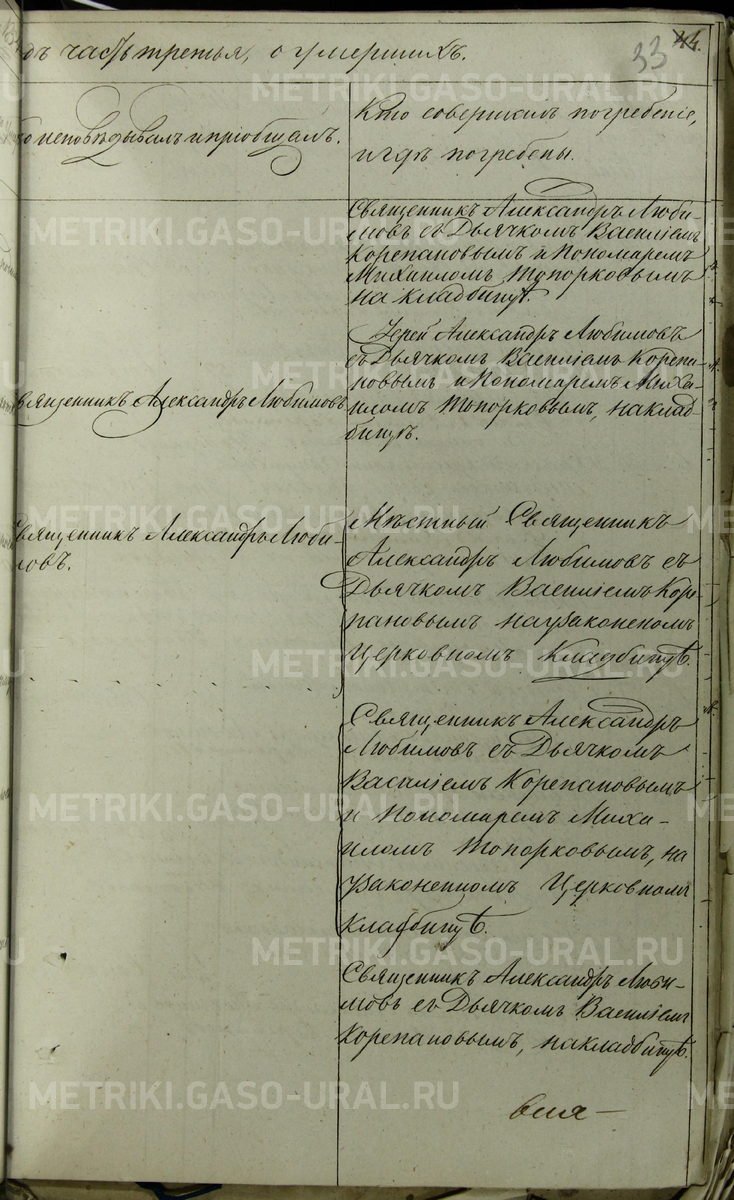 33 44.
дъ часть третья, о умершихъ.
то исповѣдывалъ и пріобщалъ.
Кто совершалъ погребеніе,
и гдѣ погребены.
Священникъ Александръ Люби-
мовъ съ Дьячкомъ Василіемъ
Корепановымъ и Пономаремъ
Михаиломъ Топорковымъ
на кладбищѣ.
Іерей Александръ Любимовъ
съ Дьячкомъ Василіемъ Корепа-
новымъ и Пономаремъ Миха-
иломъ Топорковымъ, на клад-
бищѣ.
вященникъ Александръ Любимовъ
Священникъ Александръ Люби-
мовъ.
Мѣстный Священникъ
Александръ Любимовъ съ
Дьячкомъ Василіемъ Коре-
пановымъ на узаконеномъ
Церковномъ Кладбищѣ.
Священникъ Александръ
Любимовъ съ Дьячкомъ
Василіемъ Корепановымъ
и Пономаремъ Миха-
иломъ Топорковымъ, на
узаконенномъ Церковномъ
Кладбищѣ.
Священникъ Александръ Люби-
мовъ съ Дьячкомъ Василіемъ
Корепановымъ, на кладбищѣ.
METRIKI.GASO-URAL.RU